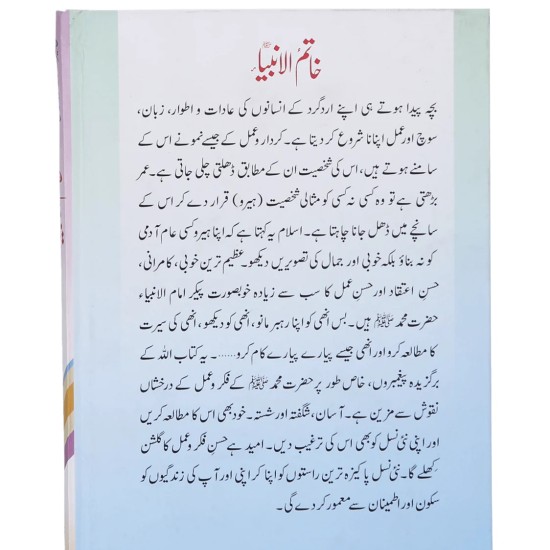 خاتم الانبیاء ﷺ
بچہ پیدا ہوتے ہی اپنے اردگرد کے انسانوں کی عادات و اطوار، زبان،
سوچ اور عمل اپنانا شروع کر دیتا ہے۔ کردار و عمل کے جیسے نمونے اس کے
سامنے ہوتے ہیں، اس کی شخصیت ان کے مطابق ڈھلتی چلی جاتی ہے۔ عمر
بڑھتی ہے تو وہ کسی نہ کسی کو مثالی شخصیت (ہیرو) قرار دے کر اس کے
سانچے میں ڈھل جانا چاہتا ہے۔ اسلام یہ کہتا ہے کہ اپنا ہیرو کسی عام آدمی
کو نہ بناؤ بلکہ خوبی اور جمال کی تصویریں دیکھو۔ عظیم ترین خوبی، کامرانی،
حسنِ اعتقاد اور حسنِ عمل کا سب سے زیادہ خوبصورت پیکر امام الانبیاء
حضرت محمد ﷺ ہیں۔ بس انھی کو اپنا رہبر مانو، انھی کو دیکھو، انھی کی سیرت
کا مطالعہ کرو اور انھی جیسے پیارے پیارے کام کرو......۔ یہ کتاب اللہ کے
برگزیدہ پیغمبروں، خاص طور پر حضرت محمد ﷺ کے فکر و عمل کے درخشاں
نقوش سے مزین ہے۔ آسان، شگفتہ اور شستہ۔ خود بھی اس کا مطالعہ کریں
اور اپنی نئی نسل کو بھی اس کی ترغیب دیں۔ امید ہے حسنِ فکر و عمل کا گلشن
کِھلے گا۔ نئی نسل پاکیزہ ترین راستوں کو اپنا کر اپنی اور آپ کی زندگیوں کو
سکون اور اطمینان سے معمور کر دے گی۔